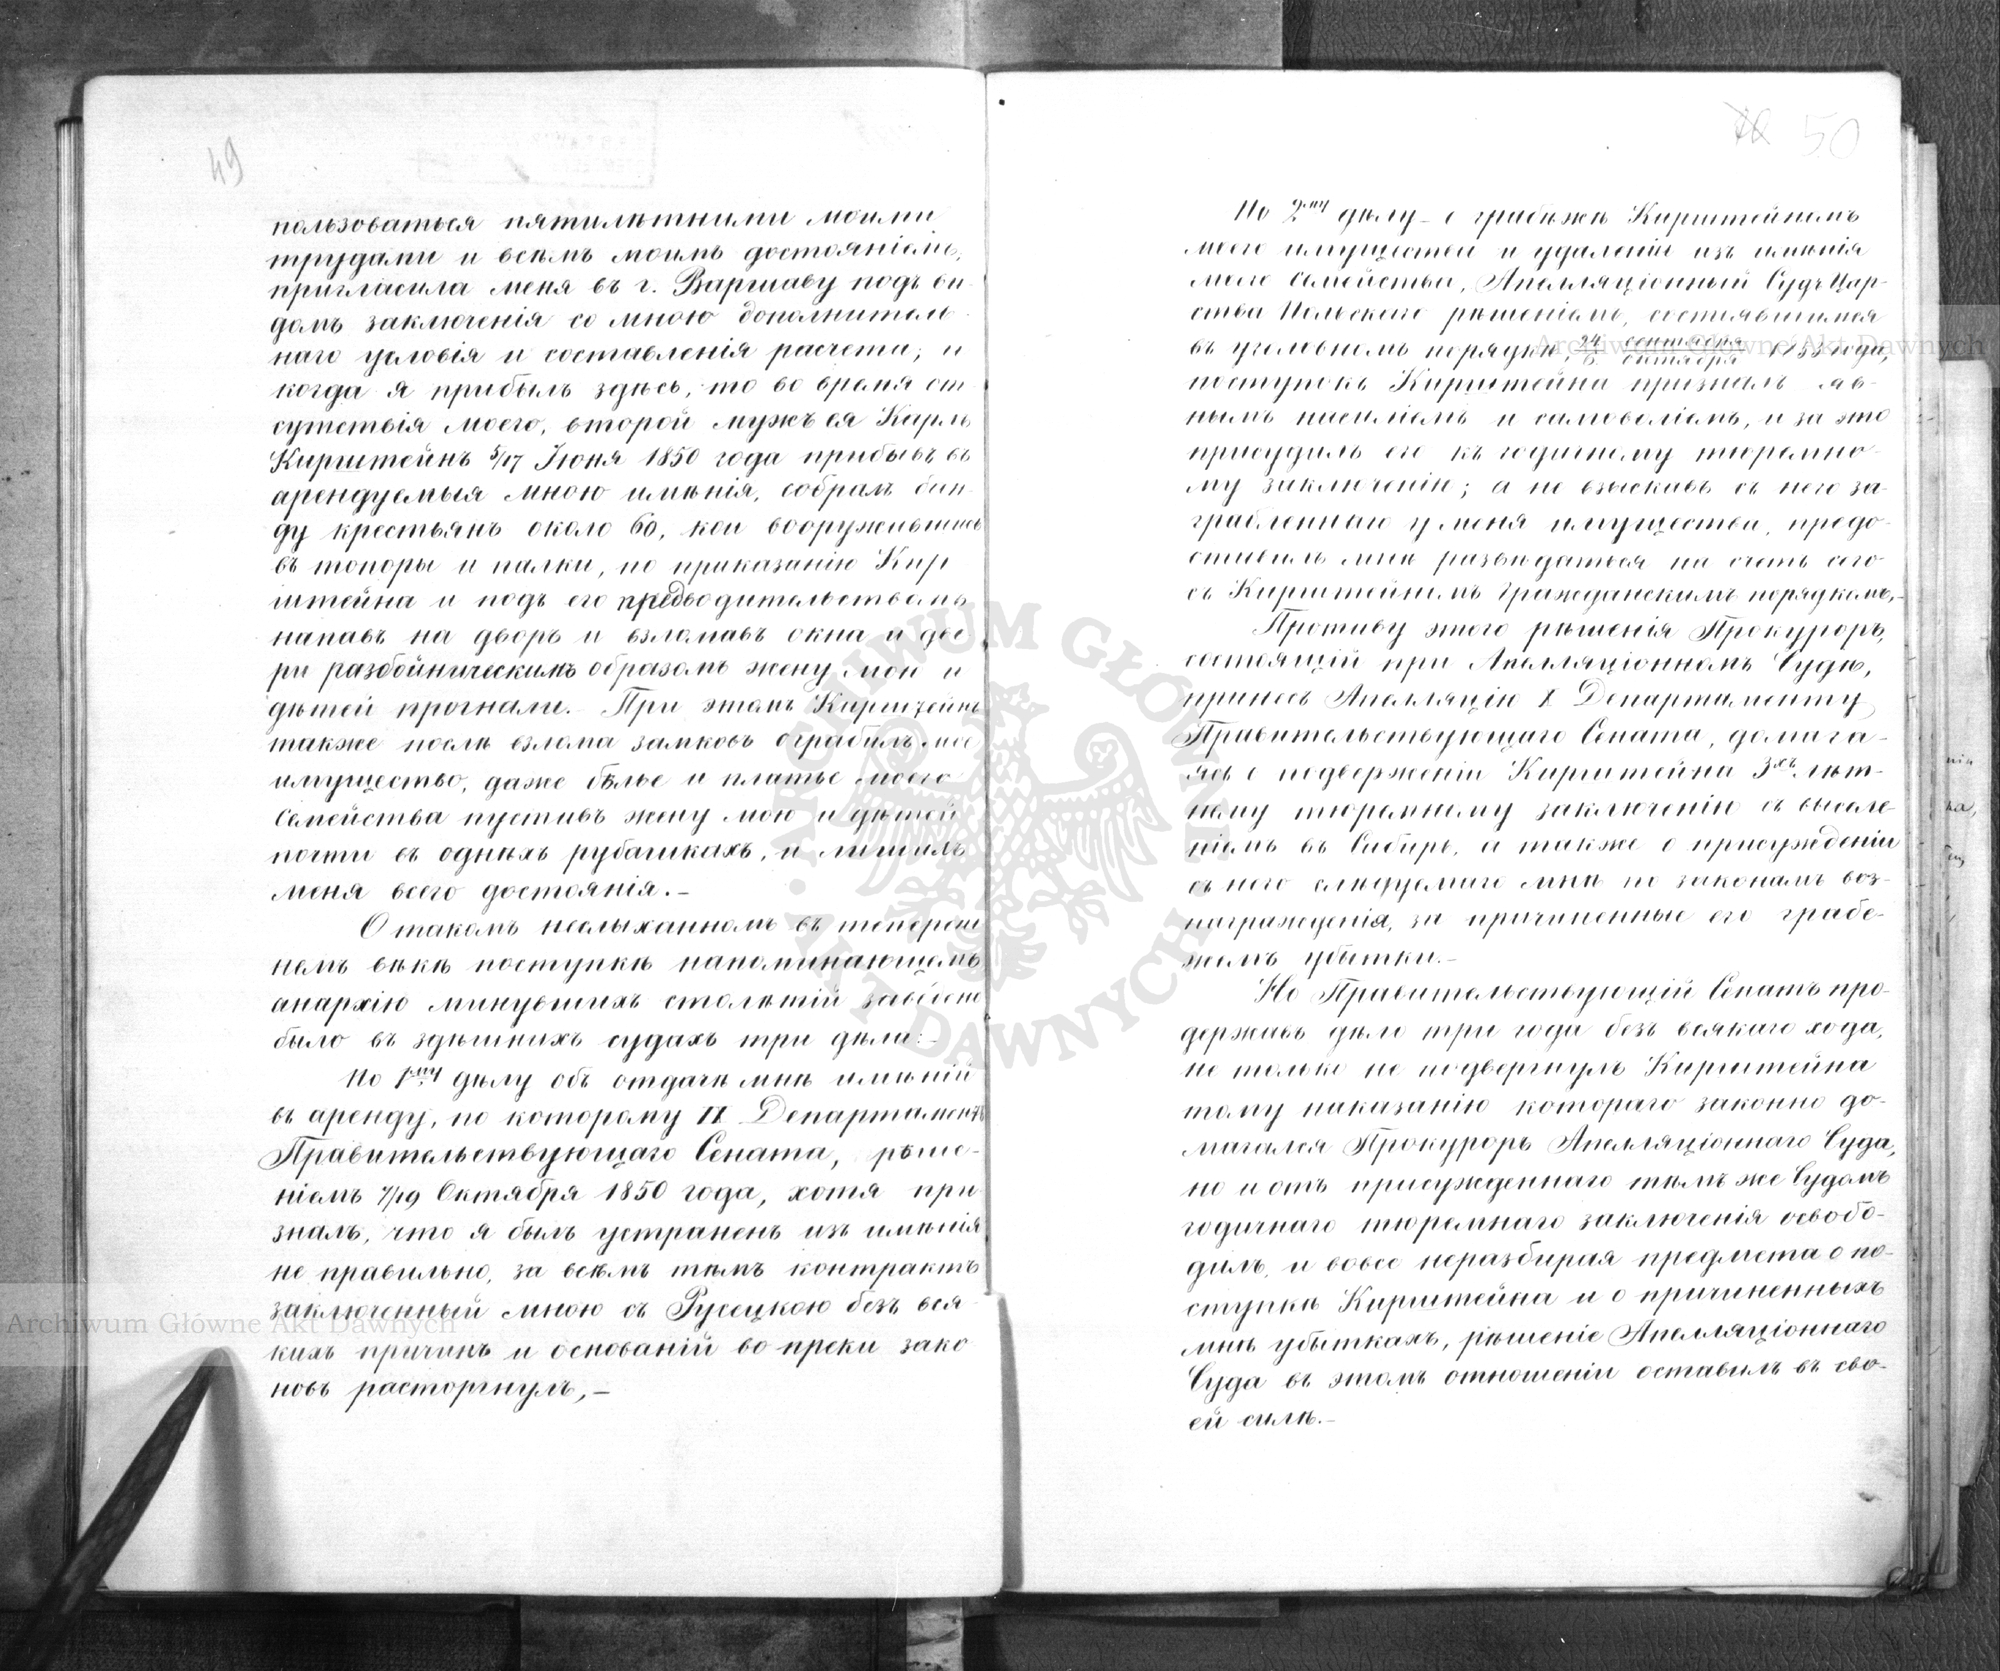 49
пользоваться пятилѣтними моими
трудами и всѣмъ моимъ достояніемъ,
пригласила меня въ г. Варшаву подъ ви-
домъ заключенія со мною дополнитель-
наго условія и составленія расчета; и
когда я прибылъ здѣсь, то во время от-
сутствія моего, второй мужъ ея Карлъ
Кирштейнъ 5/17 Іюня 1850 года прибывъ въ
арендуемыя мною имѣнія, собралъ бан-
ду крестьянъ около 60, кои вооружившись
въ топоры и палки, по приказанію Кир
штейна и подъ его предводительствомъ
напавъ на дворъ и взломавъ окна и две-
ри разбойническимъ образомъ жену мою и
дѣтей прогнали. - При этомъ Кирштейнъ
также послѣ взлома замковъ ограбилъ мое
имущество, даже бѣлье и платье моего
Семейства пустивъ жену мою и дѣтей
почти въ однѣхъ рубашкахъ, и лишилъ
меня всего достоянія. -
О такомъ неслыханномъ въ тепереш
немъ вѣкѣ поступкѣ напоминающемъ
анархію минувшихъ столѣтій заведено
было въ здѣшнихъ судахъ три дѣла: -
По 1му дѣлу объ отдачѣ мнѣ имѣній
въ аренду, по которому IX Департаментъ
Правительствующаго Сената, рѣше-
ніемъ 7/19 Октября 1850 года, хотя при
зналъ, что я былъ устраненъ изъ имѣнія
не правильно, за всѣмъ тѣмъ контрактъ
заключенный мною съ Русецкою безъ вся-
кихъ причинъ и основаній во преки зако
новъ расторгнулъ, -
50
По 2му дѣлу - о грабежѣ Кирштейномъ
моего имущества и удаленіи изъ имѣнія
моего Семейства, Апелляціонный Судъ Цар-
ства Польскаго рѣшеніемъ, состоявшимся
въ уголовномъ порядкѣ, 24 сентября / 6 октября 1853 года,
поступокъ Кирштейна призналъ яв-
нымъ насиліемъ и самоволіемъ, и за это
присудилъ его къ годичному тюремно-
му заключенію; а не взыскавъ съ него за-
грабленнаго у меня имущества, предо-
ставилъ мнѣ развѣдаться на счетъ сего
съ Кирштейномъ Гражданскимъ порядкомъ, -
Противу этого рѣшенія Прокуроръ,
состоящій при Апелляціонномъ Судѣ,
принесъ Апелляцію X Департаменту
Правительствующаго Сената, домога-
ясь о подверженіи Кирштейна 3хъ лѣт-
нему тюремному заключенію съ выселе-
ніемъ въ Сибирь, а также о присужденіи
съ него слѣдуемаго мнѣ по законамъ воз-
награжденія, за причиненные его грабе-
жемъ убытки. -
Но Правительствующій Сенатъ про-
державъ дѣло три года безъ всякаго хода,
не только не подвергнулъ Кирштейна
тому наказанію котораго законно до-
магался Прокуроръ Апелляціоннаго Суда,
но и отъ присужденнаго тѣмъ же Судомъ
годичнаго тюремнаго заключенія освобо-
дилъ, и вовсе неразбирая предмета о по-
ступкѣ Кирштейна и о причиненныхъ
мнѣ убыткахъ, рѣшеніе Апелляціоннаго
Суда въ этомъ отношеніи оставилъ въ сво-
ей силѣ. -
ARCHIWUM GŁÓWNE AKT DAWNYCH
Archiwum Główne Akt Dawnych
Archiwum Główne Akt Dawnych